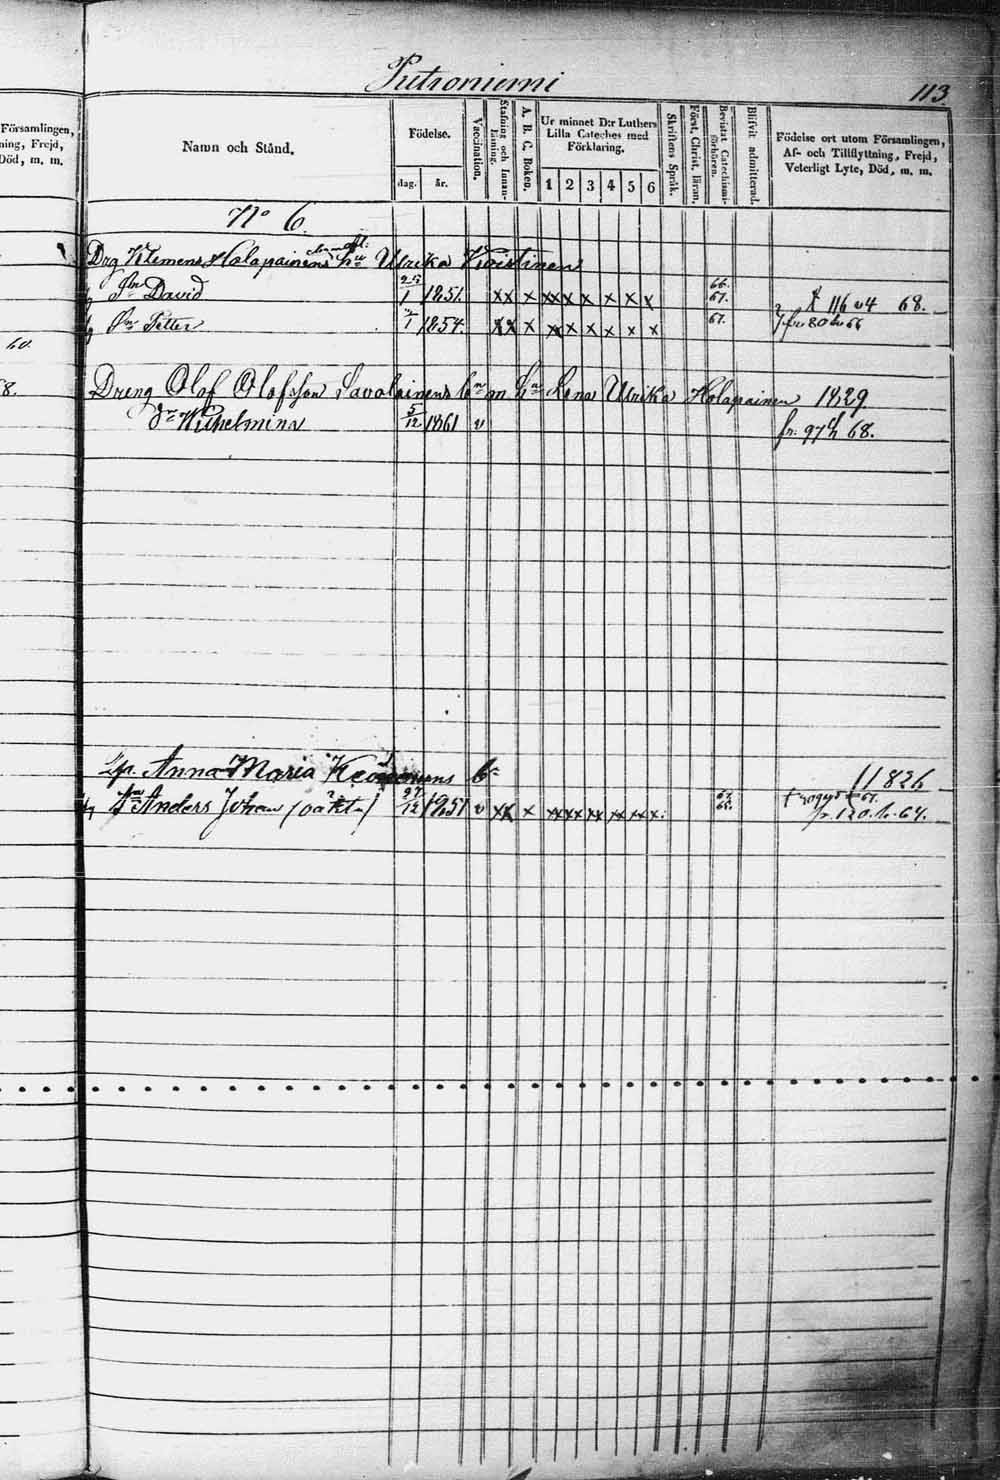 Putroniemi
113.
Församlingen,
ning, Frejd,
Död, m. m.
Namn och Stånd.
Födelse.
dag. år.
Vaccination.
Stafning och Innan-läsning.
A. B. C. Boken.
Ur minnet D:r Luthers
Lilla Cateches med
Förklaring.
1 2 3 4 5 6
Skriftens Språk.
Först. Christ. läran.
Bevistat Catechismi-förhören.
Blifvit admitterad.
Födelse ort utom Församlingen,
Af- och Tillflyttning, Frejd,
Veterligt Lyte, Död, m. m.
No 6.
Drg Klemens Holapainens hu Ulrika Koistinen
Sn David 25/1 1851. xx x xx x x x x x 66. 67. 116 v 4 68.
Sn Petter 1854. xx x xx x x x x x 67. fr 80 66
60.
8.
Dreng Olof Olofsson Savolainens bn m hu Lena Ulrika Holapainen 1829
Dr Wilhelmina 5/12 1861 v fr. 97 h 68.
Zp. Anna Maria bn 11 826
Sn Anders Johan (oäkta) 27/12 1851 v xx x xx xx xx xx x x. 67. 65. 67.
fr. 120. h. 64.